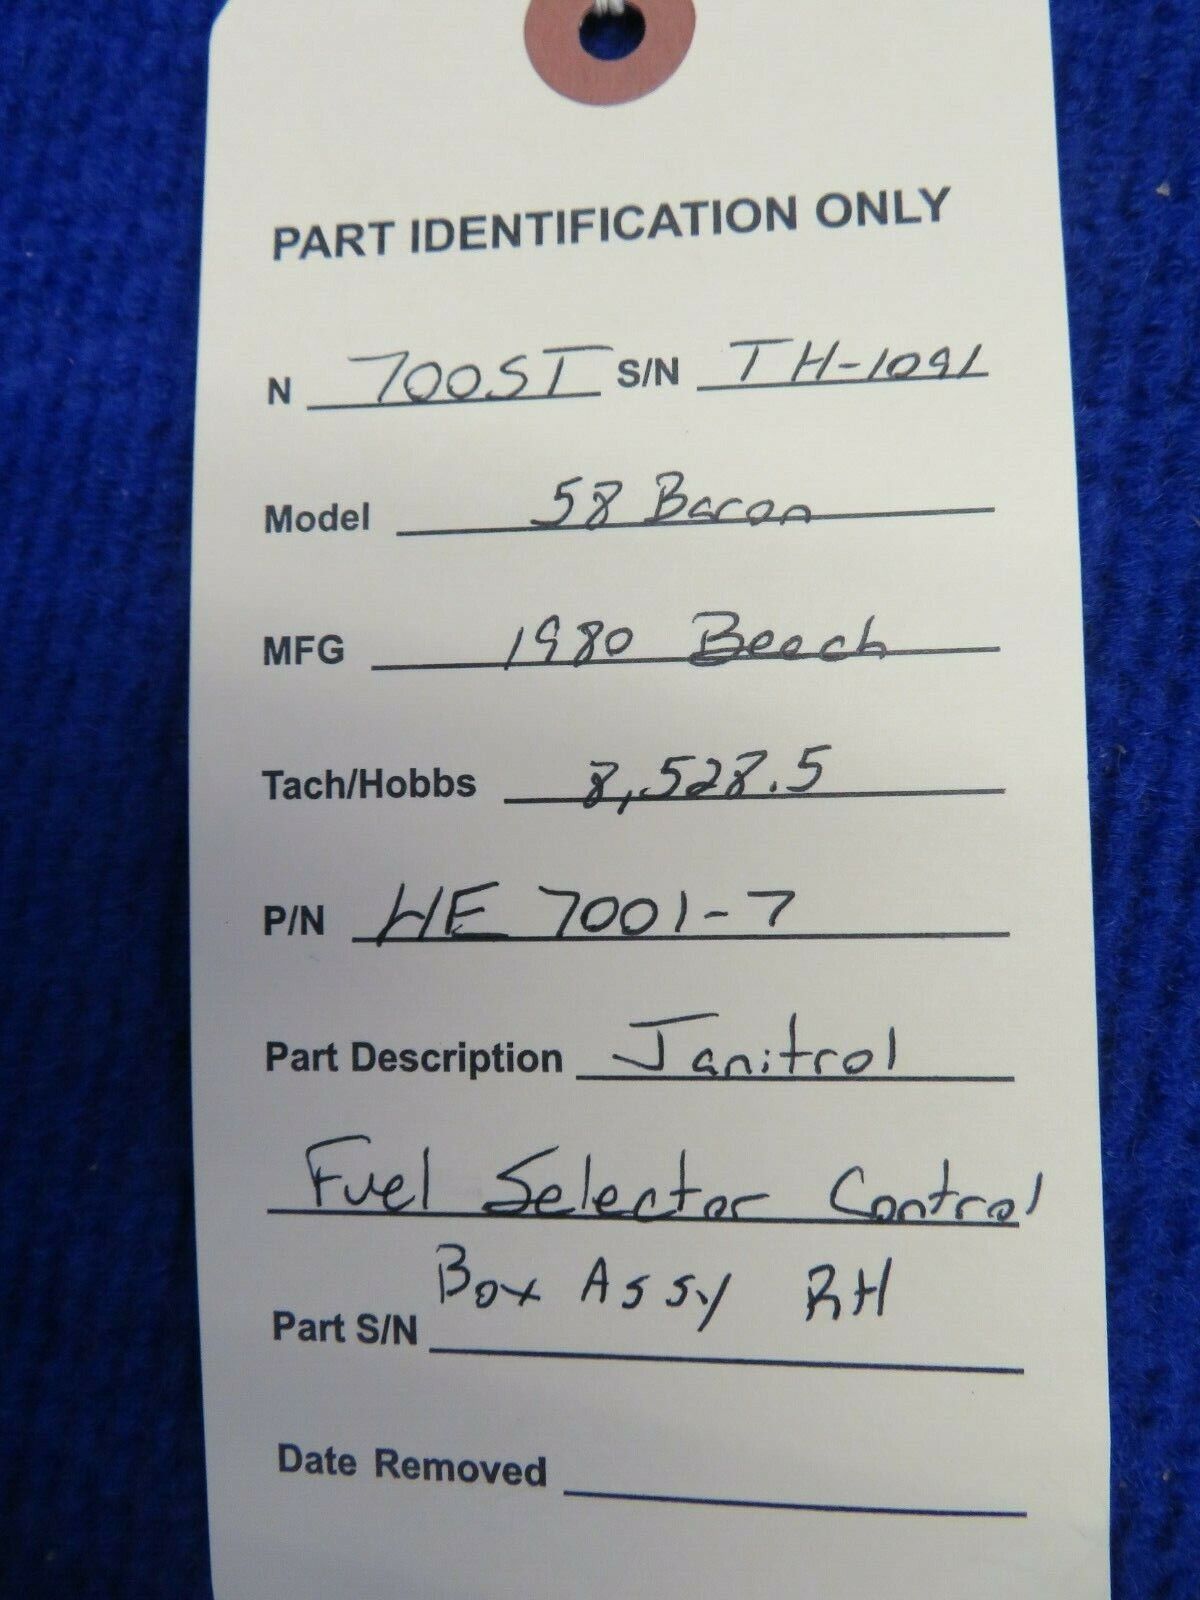 PART IDENTIFICATION ONLY
N 700ST S/N TH-1091
Model 58 Baron
MFG 1980 Beech
Tach/Hobbs 8,528.5
P/N HE 7001-7
Part Description Janitrol
Fuel Selector Control
Box Assy RH
Part S/N
Date Removed